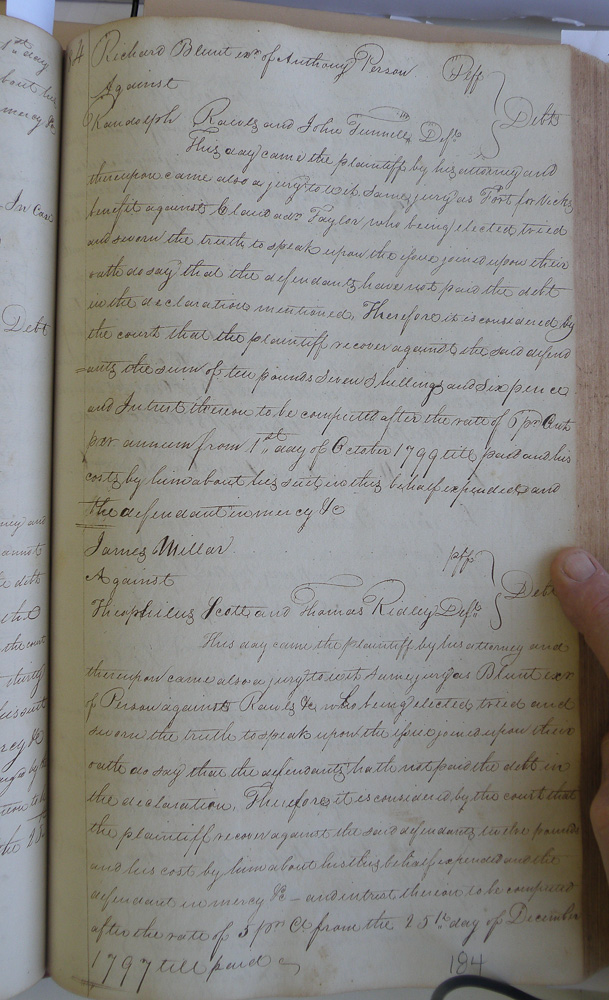 1st day
about his
mercy &c
In Case
Debt
4 Richard Blunt exr of Anthony Person Plff
Against
Randolph Rawls and John Tunnell Defts Debts
This day came the plaintiff by his attorney and
thereupon came also a jury to wit. Same jury as Fort for Vicks
benefit against Claud adr Taylor who being elected tried
and sworn the truth to speak upon the issue joined upon their
oath do say that the defendants have not paid the debt
in the declaration mentioned, Therefore it is considered by
the court that the plaintiff recover against the said defend
=ants the sum of ten pounds seven shillings and six pence
and Intrest thereon to be computed after the rate of 6 pr Cent
per annum from 1st day of October 1799 till paid and his
costs by him about his suit in this behalf expended and
the defendant in mercy &c
James Millar plff
Against
Theophilus Scott and Thomas Ridley Defts Debt
This day came the plaintiff by his attorney and
thereupon came also a jury to wit same jury as Blunt exr
of Person against Rawls &c who being elected tried and
sworn the truth to speak upon the issue joined upon their
oath do say that the defendants hath not paid the debt in
the declaration, Therefore it is considered by the court that
the plaintiff recover against the said defendants twelve pounds
and his cost by him about his this behalf expended and the
defendant in mercy &c - and intrest thereon to be computed
after the rate of 5 pr Ct from the 25th day of December
1797 till paid
184